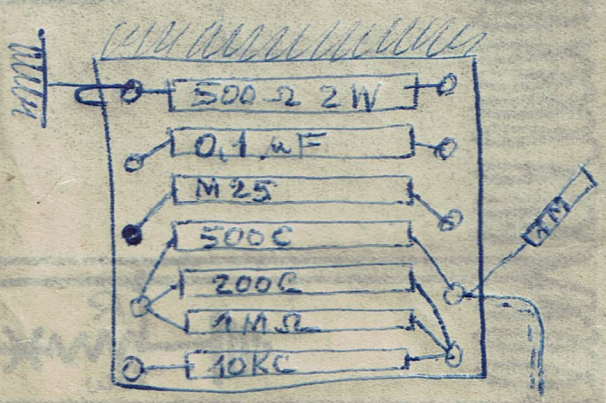 500Ω 2W
0,1 µF
M25
500C
200C
1MΩ
10KC
1M